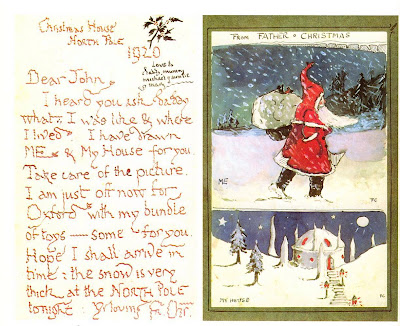 Christmas House
NORTH POLE
1920
Love to
daddy, mummy
michael & auntie
& mary
Dear John,
I heard you ask daddy
what I was like & where
I lived. I have drawn
ME & My House for you.
Take care of the picture.
I am just off now for
Oxford with my bundle
of toys — some for you.
Hope I shall arrive in
time: the snow is very
thick at the NORTH POLE
tonight: Yr loving Fr. Chr.
FROM FATHER CHRISTMAS
ME
MY HOUSE